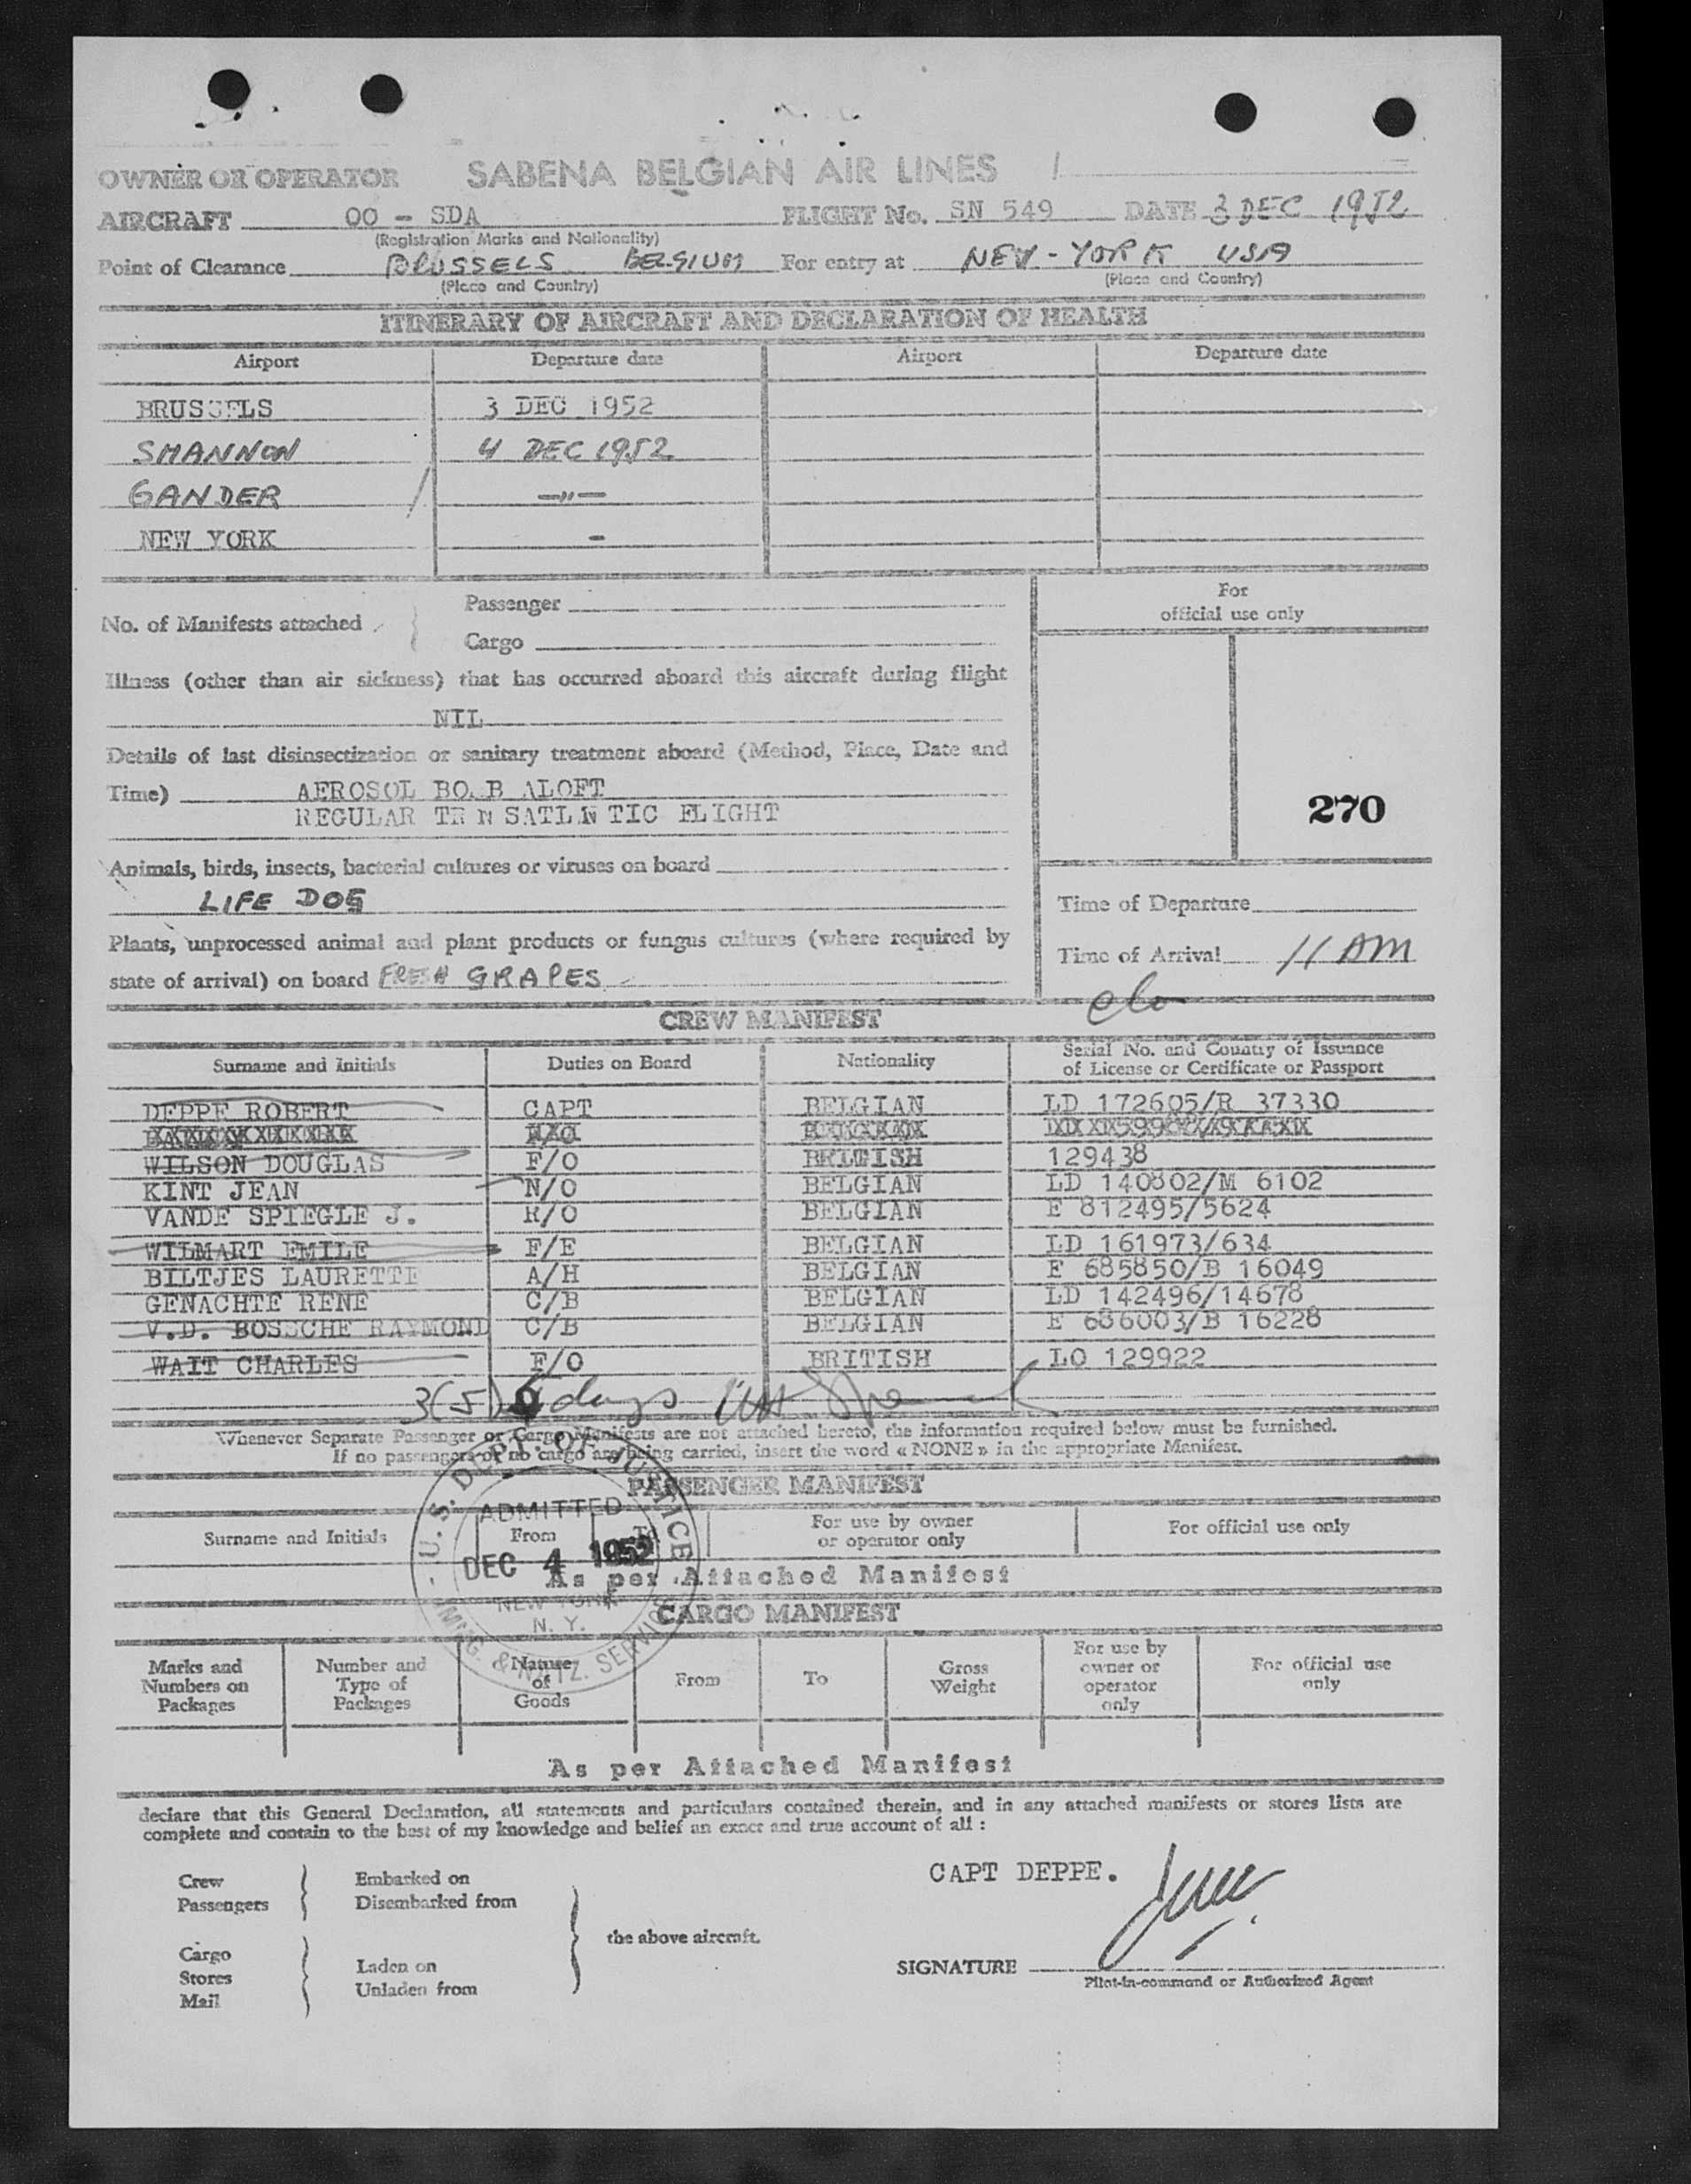 OWNER OR OPERATOR SABENA BELGIAN AIR LINES /
AIRCRAFT OO - SDA FLIGHT No. SN 549 DATE 3 DEC 1952
(Registration Marks and Nationality)
Point of Clearance BRUSSELS BELGIUM For entry at NEW-YORK USA
(Place and Country) (Place and Country)
ITINERARY OF AIRCRAFT AND DECLARATION OF HEALTH
Airport Departure date Airport Departure date
BRUSSELS 3 DEC 1952
SHANNON 4 DEC 1952
GANDER -"-
NEW YORK -
No. of Manifests attached
Passenger
Cargo
For
official use only
Illness (other than air sickness) that has occurred aboard this aircraft during flight
NIL
Details of last disinsectization or sanitary treatment aboard (Method, Place, Date and
Time) AEROSOL BO.B ALOFT
REGULAR TR N SATLN TIC FLIGHT
270
Animals, birds, insects, bacterial cultures or viruses on board
LIFE DOG
Time of Departure
Plants, unprocessed animal and plant products or fungus cultures (where required by
state of arrival) on board FRESH GRAPES
Time of Arrival 11 AM
CREW MANIFEST
Surname and Initials Duties on Board Nationality Serial No. and Country of Issuance
of License or Certificate or Passport
DEPPE ROBERT CAPT BELGIAN LD 172605/R 37330
WILSON DOUGLAS F/O BRITISH 129438
KINT JEAN N/O BELGIAN LD 140802/M 6102
VANDE SPIEGLE J. R/O BELGIAN E 812495/5624
WILMART EMILE F/E BELGIAN LD 161973/634
BILTJES LAURETTE A/H BELGIAN E 685850/B 16049
GENACHTE RENE C/B BELGIAN LD 142496/14678
V.D. BOSSCHE RAYMOND C/B BELGIAN E 686003/B 16228
WAIT CHARLES F/O BRITISH LO 129922
3(5) days
Whenever Separate Passenger or Cargo Manifests are not attached hereto, the information required below must be furnished.
If no passengers or no cargo are being carried, insert the word « NONE » in the appropriate Manifest.
PASSENGER MANIFEST
Surname and Initials From To For use by owner
or operator only For official use only
As per Attached Manifest
U.S. DEPT. OF JUSTICE
ADMITTED
DEC 4 1952
NEW YORK
N. Y.
IMMIG. & NATZ. SERVICE
CARGO MANIFEST
Marks and
Numbers on
Packages
Number and
Type of
Packages
Nature
of
Goods
From
To
Gross
Weight
For use by
owner or
operator
only
For official use
only
As per Attached Manifest
declare that this General Declaration, all statements and particulars contained therein, and in any attached manifests or stores lists are
complete and contain to the best of my knowledge and belief an exact and true account of all :
Crew
Passengers
Embarked on
Disembarked from
Cargo
Stores
Mail
Laden on
Unladen from
the above aircraft.
CAPT DEPPE.
SIGNATURE
Pilot-in-command or Authorized Agent